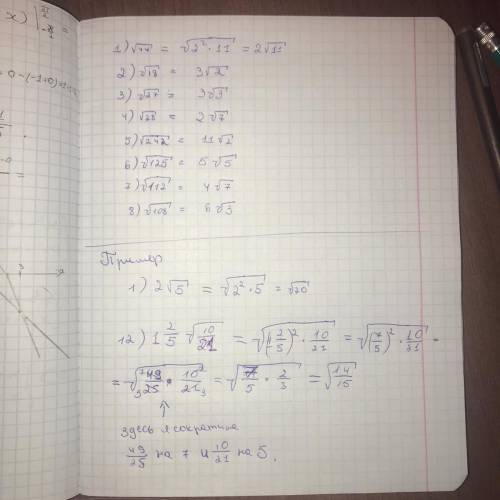 x)
= 0 - (-1+0)
1) √44 = √2² · 11 = 2√11
2) √18 = 3√2
3) √27 = 3√3
4) √28 = 2√7
5) √242 = 11√2
6) √125 = 5√5
7) √112 = 4√7
8) √108 = 6√3
Пример
1) 2√5 = √2² · 5 = √20
12) 1 2/5 √10/21 = √(1 2/5)² · 10/21 = √(7/5)² · 10/21 =
= √49/25 · 10/21 = √7/5 · 2/3 = √14/15
здесь я сократила
49/25 на 7 и 10/21 на 5.